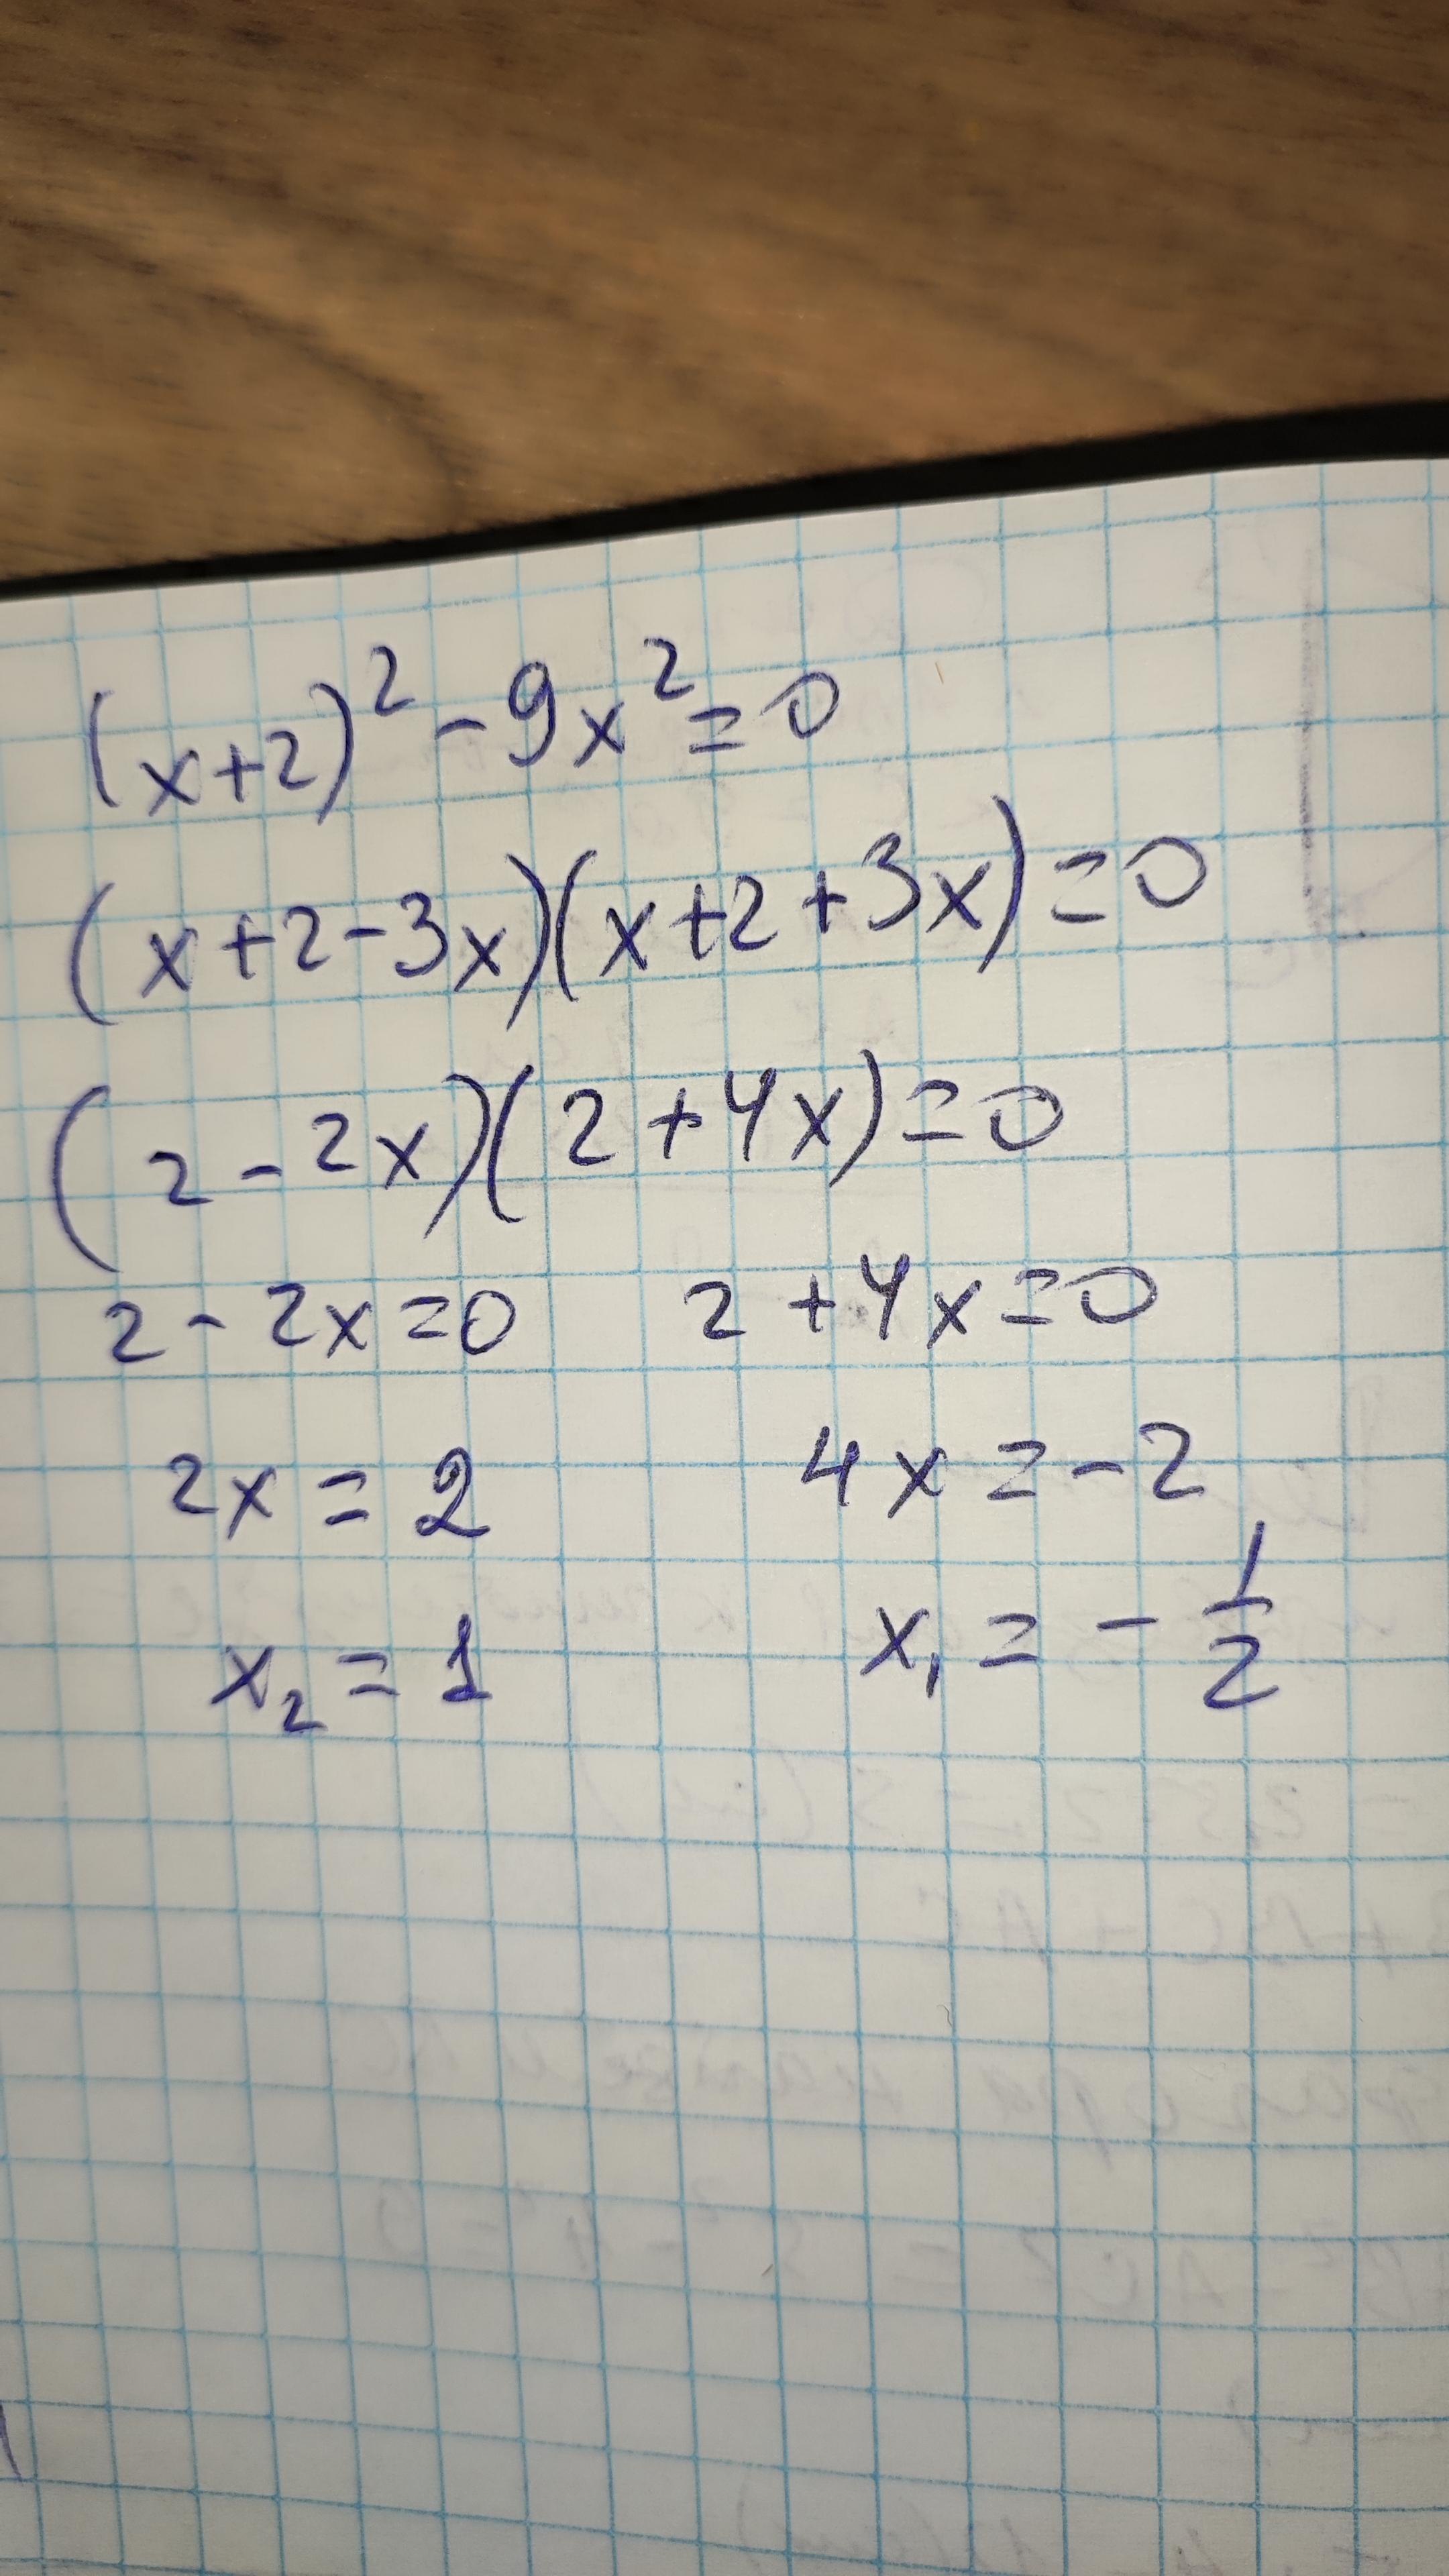 (x+2)² - 9x² = 0
(x+2-3x)(x+2+3x) = 0
(2-2x)(2+4x) = 0
2-2x=0 2+4x=0
2x = 2 4x = -2
x₂ = 1 x₁ = -1/2